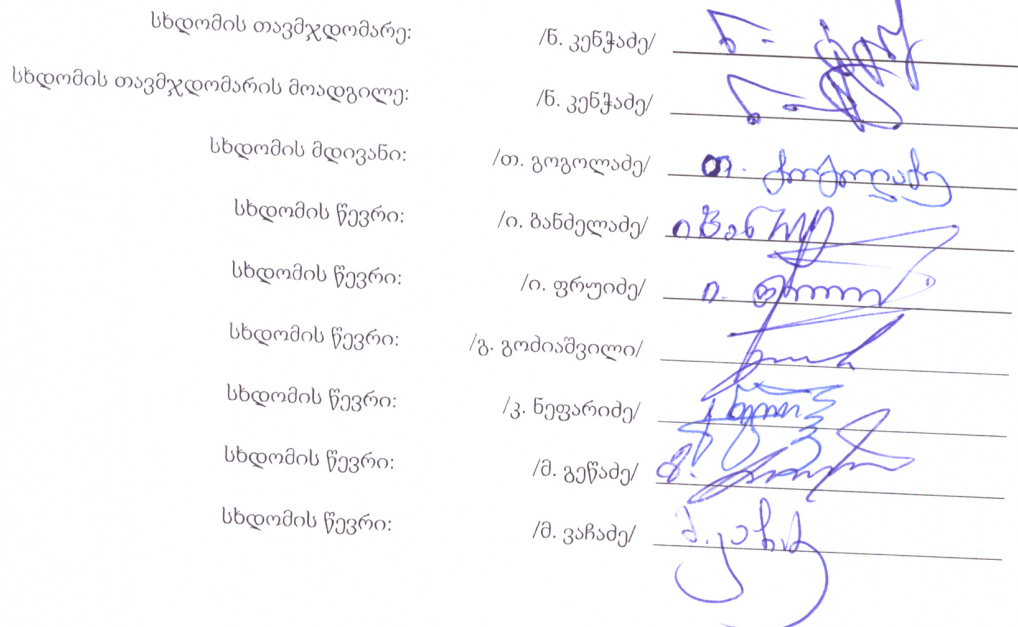 სხდომის თავმჯდომარე: /ნ. კენჭაძე/
სხდომის თავმჯდომარის მოადგილე: /ნ. კენჭაძე/
სხდომის მდივანი: /თ. გოგოლაძე/ თ. გოგოლაძე
სხდომის წევრი: /ი. ბანძელაძე/
სხდომის წევრი: /ი. ფრუიძე/
სხდომის წევრი: /გ. გოძიაშვილი/
სხდომის წევრი: /კ. ნეფარიძე/
სხდომის წევრი: /მ. გეწაძე/
სხდომის წევრი: /მ. ვაჩაძე/